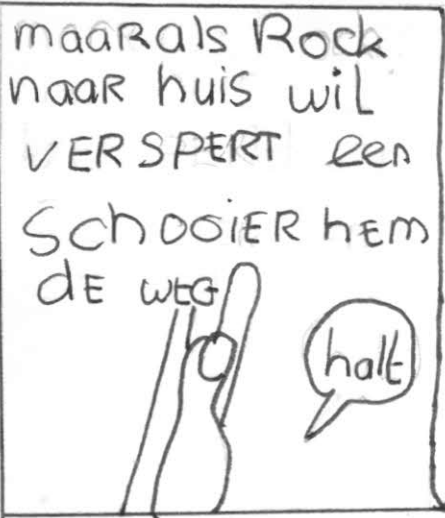 maaRals Rock
naaR huis wil
VERSPERT een
SchooiER hEm
dE WEG
halt